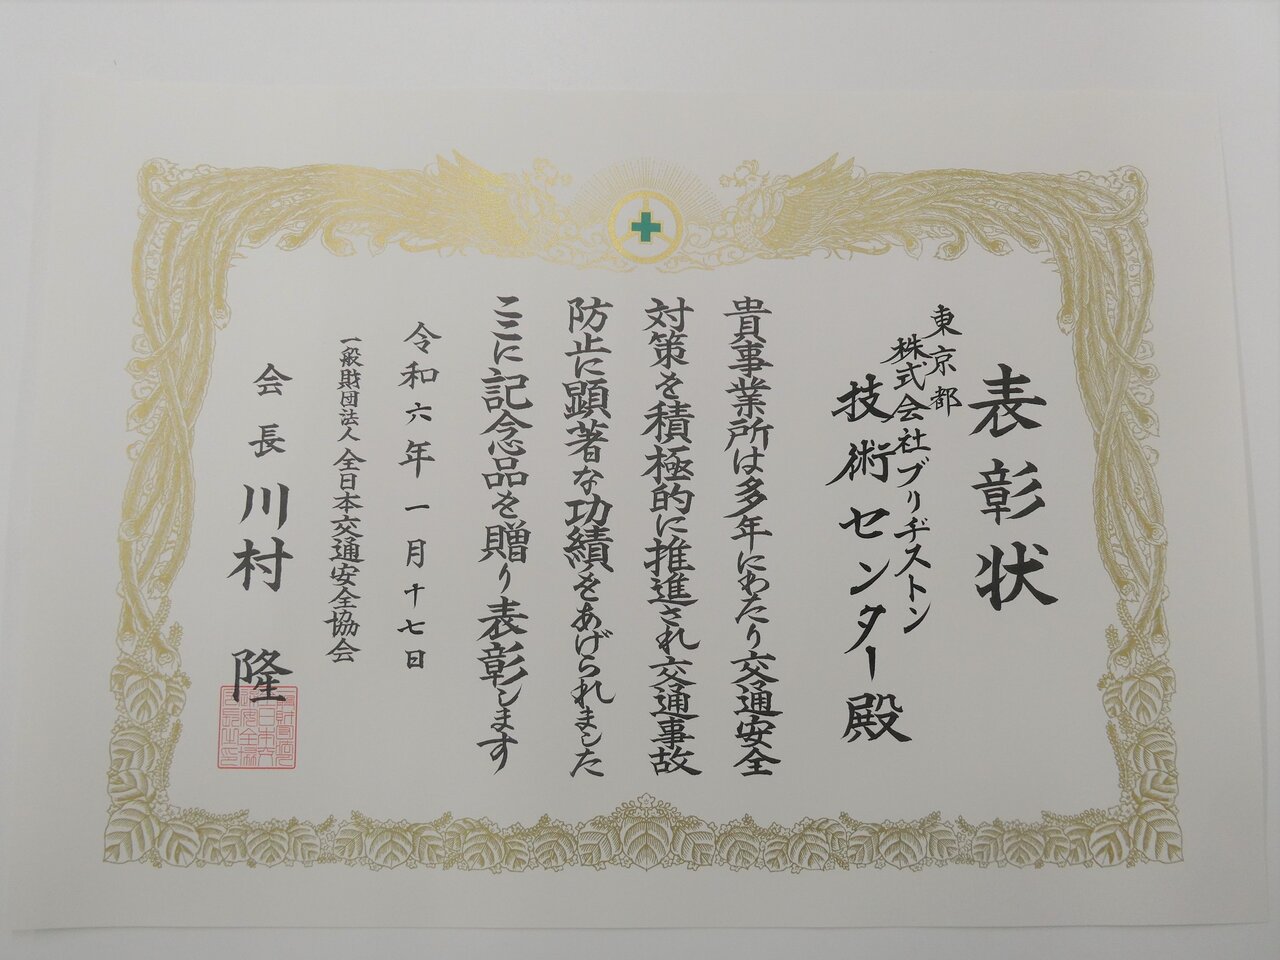 表彰状
東京都
株式会社ブリヂストン
技術センター殿
貴事業所は多年にわたり交通安全
対策を積極的に推進され交通事故
防止に顕著な功績をあげられました
ここに記念品を贈り表彰します
令和六年一月十七日
一般財団法人 全日本交通安全協会
会長 川村 隆